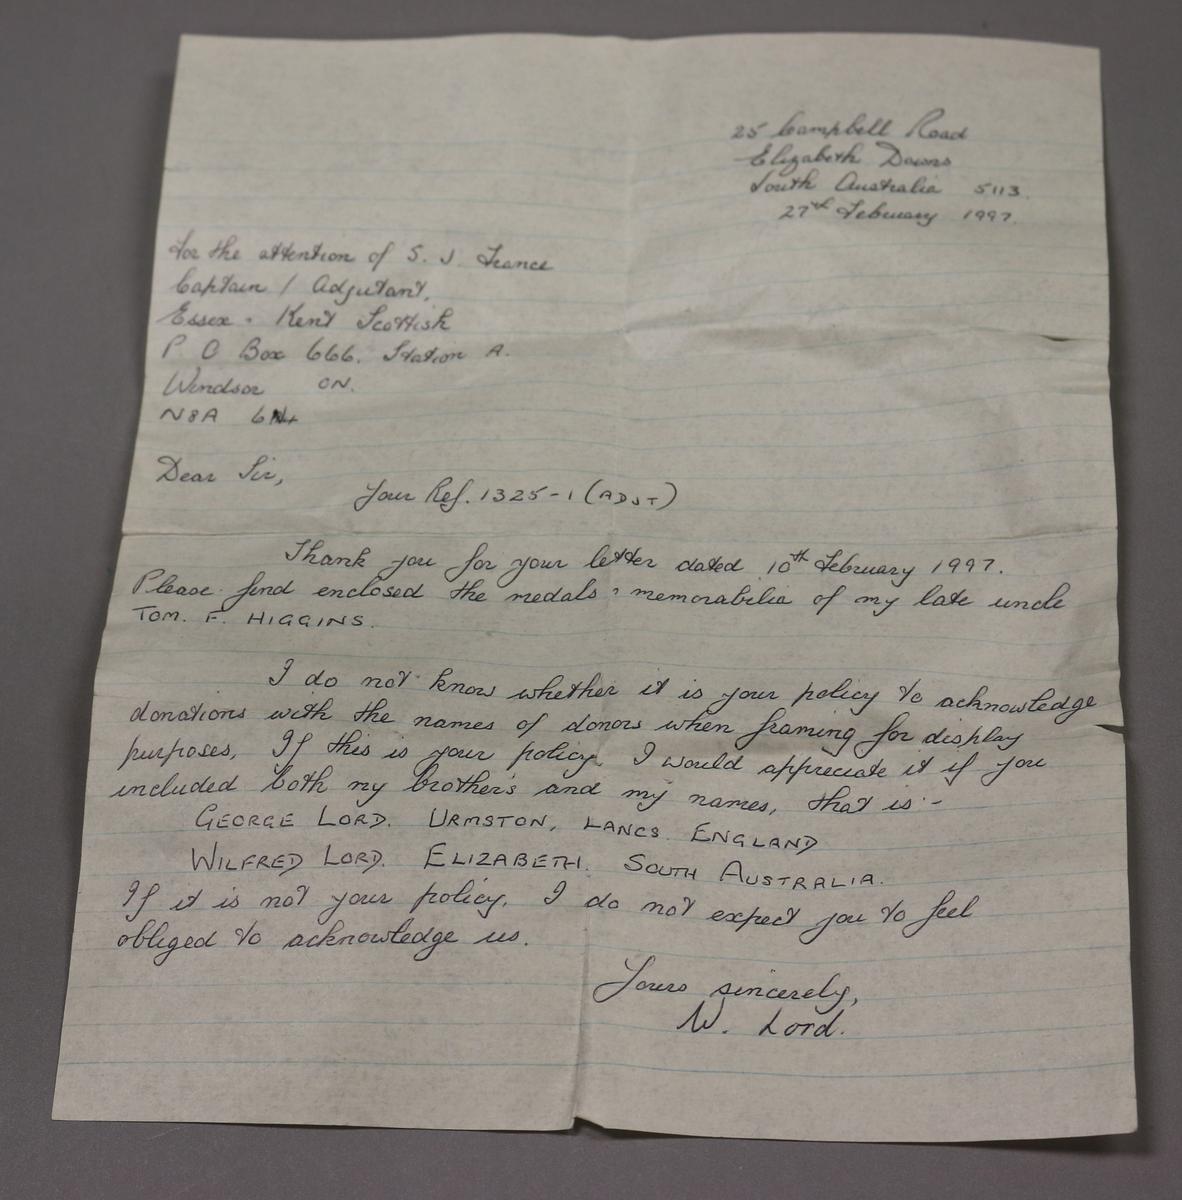 25 Campbell Road
Elizabeth Downs
South Australia 5113.
27th February 1997.
For the attention of S. J. France
Captain / Adjutant,
Essex - Kent Scottish
P O Box 666. Station A.
Windsor ON.
N8A
Dear Sir,
Your Ref. 1325-1 (ADJT)
Thank you for your letter dated 10th February 1997.
Please find enclosed the medals & memorabilia of my late uncle
TOM. F. HIGGINS.
I do not know whether it is your policy to acknowledge
donations with the names of donors when framing for display
purposes. If this is your policy, I would appreciate it if you
included both my brother's and my names, that is :-
GEORGE LORD. URMSTON, LANCS. ENGLAND
WILFRED LORD. ELIZABETH. SOUTH AUSTRALIA.
If it is not your policy, I do not expect you to feel
obliged to acknowledge us.
Yours sincerely,
W. Lord.